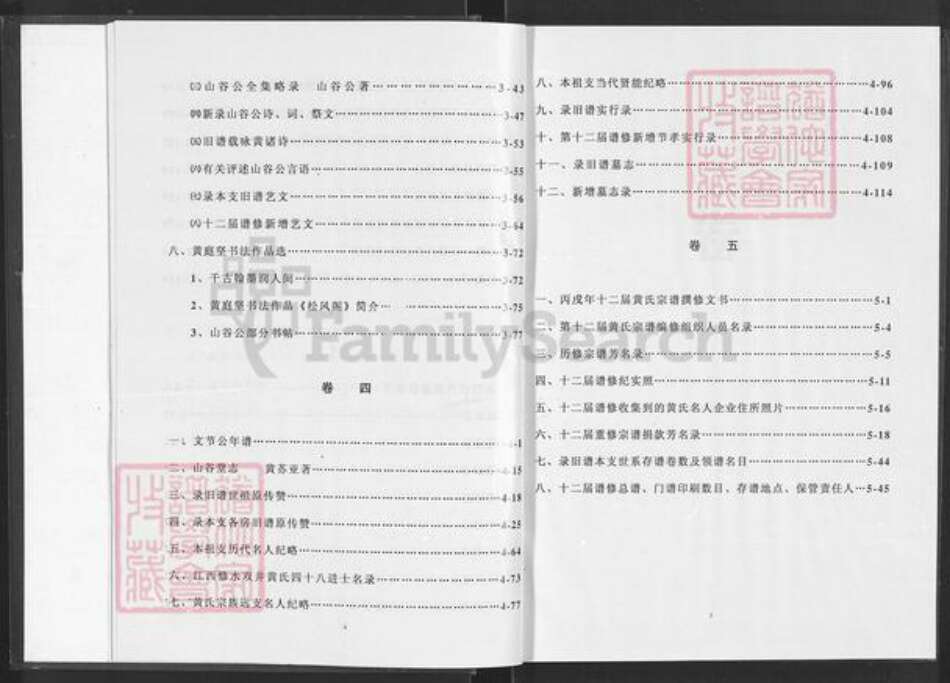 ㈢山谷公全集略录 山谷公著………………3-43
㈣新录山谷公诗、词、祭文………………3-47
㈤旧谱载咏黄诸诗………………3-53
㈥有关评述山谷公言语………………3-55
㈦录本支旧谱艺文………………3-56
㈧十二届谱修新增艺文………………3-64
八、黄庭坚书法作品选………………3-72
1、千古翰墨润人间………………3-72
2、黄庭坚书法作品《松风阁》简介………………3-75
3、山谷公部分书帖………………3-77
卷 四
一、文节公年谱………………4-1
二、山谷堂志 黄苏亚著………………4-15
三、录旧谱世祖原传赞………………4-18
四、录本支各房旧谱原传赞………………4-25
五、本祖支历代名人纪略………………4-64
六、江西修水双井黄氏四十八进士名录………………4-73
七、黄氏宗族远支名人纪略………………4-77
八、本祖支当代贤能纪略………………4-96
九、录旧谱实行录………………4-104
十、第十二届谱修新增节孝实行录………………4-108
十一、录旧谱墓志………………4-109
十二、新增墓志录………………4-114
卷 五
一、丙戌年十二届黄氏宗谱撰修文书………………5-1
二、第十二届黄氏宗谱编修组织人员名录………………5-4
三、历修宗谱芳名录………………5-5
四、十二届谱修纪实照………………5-11
五、十二届谱修收集到的黄氏名人企业住所照片………………5-16
六、十二届重修宗谱捐款芳名录………………5-18
七、录旧谱本支世系存谱卷数及领谱名目………………5-44
八、十二届谱修总谱、门谱印刷数目、存谱地点、保管责任人…5-45
FamilySearch